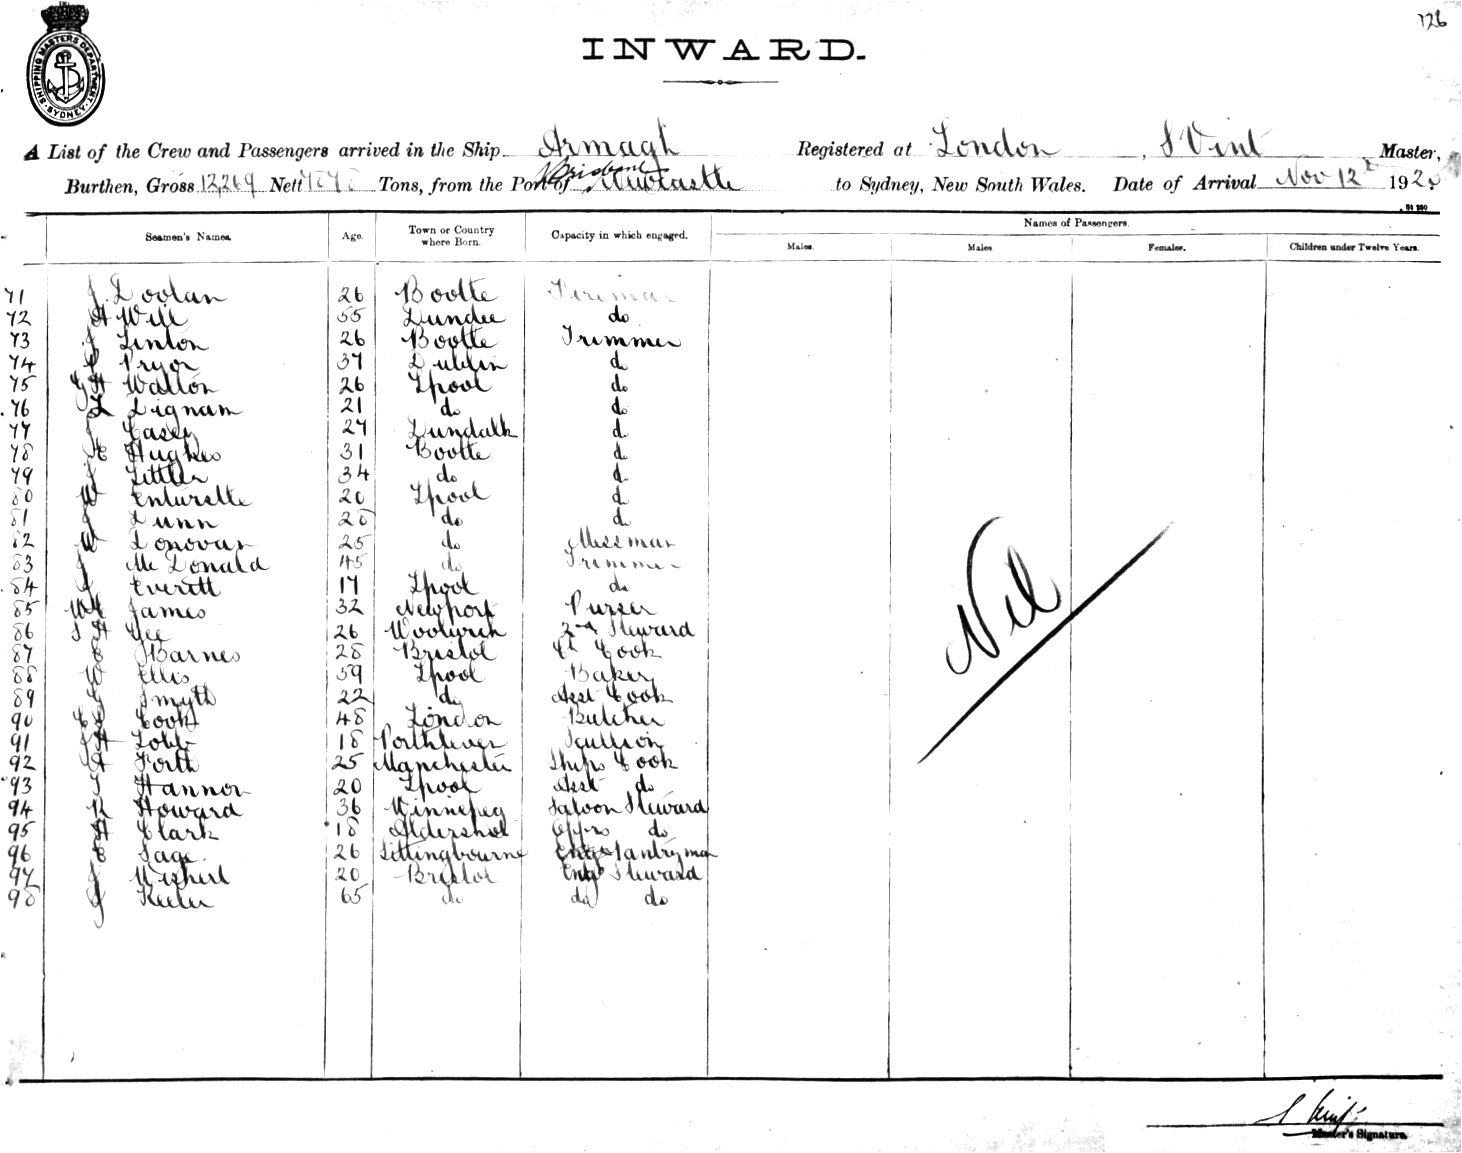 126
SHIPPING MASTERS DEPARTMENT SYDNEY
INWARD.
A List of the Crew and Passengers arrived in the Ship Armagh Registered at London, S Vint Master,
Brisbane
Burthen, Gross 12,269 Nett Tons, from the Port of Newcastle to Sydney, New South Wales. Date of Arrival Nov 12th 192
Names of Passengers.
Seamen's Names. Age. Town or Country where Born. Capacity in which engaged. Males. Males Females. Children under Twelve Years.
71 J. Doolan 26 Bootle Fireman
72 A Will 55 Dundee do
73 J Linton 26 Bootle Trimmer
74 Pryor 37 Dublin do
75 G H Walton 26 Lpool do
76 L Dignam 21 do do
77 J Casey 27 Dundalk do
78 E Hughes 31 Bootle do
79 J Littler 34 do do
80 W Entwistle 20 Lpool do
81 J Dunn 28 do do
82 Donovan 25 do Messman
83 J McDonald 45 do Trimmer
84 J Everitt 17 Lpool do
85 James 32 Newport Purser
86 Gee 26 Woolwich 2nd Steward
87 Barnes 28 Bristol Ch Cook
88 W Ellis 59 Lpool Baker
89 Smyth 22 do Asst Cook
90 Cook 48 London Butcher
91 Lobb 18 Porthleven Scullion
92 A Forth 25 Manchester Ships Cook
93 Hannon 20 Lpool Asst do
94 R Howard 36 Winnepeg Saloon Steward
95 A Clark 18 Aldershot Offrs do
96 Sage 26 Sittingbourne Engs Pantryman
97 J 20 Bristol Engs Steward
98 J Keeler 65 do do do
Nil
S Vint
Master's Signature.